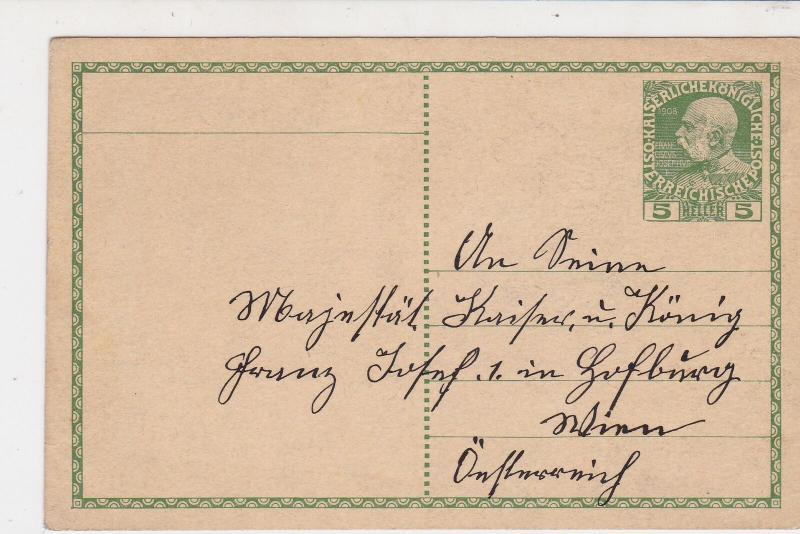 KAISERLICHEKÖNIGLICHE
ÖSTERREICHISCHEPOST
1908
FRAN
CISCVS
IOSEPHVS I
5 HELLER 5
An Seine
Majestät Kaiser, u. König
Franz Josef. 1. in Hofburg
Wien
Österreich